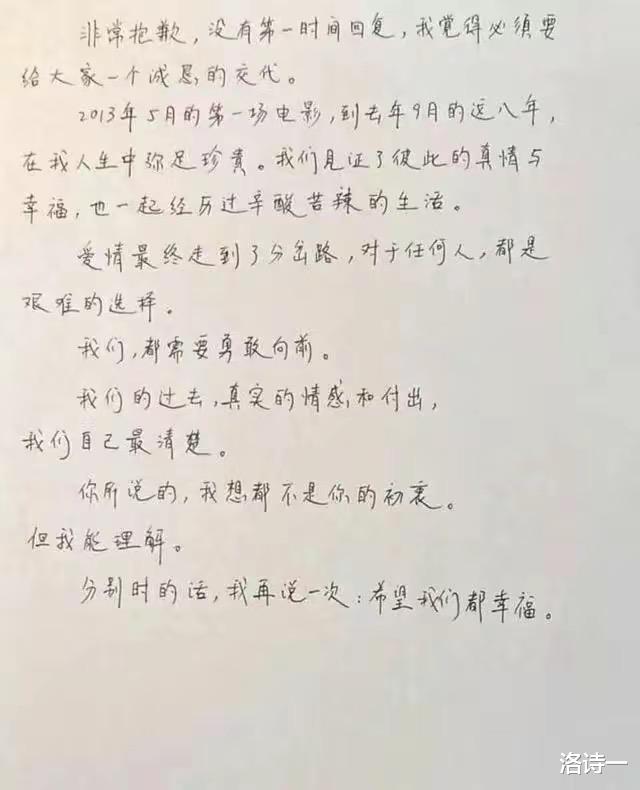 非常抱歉，没有第一时间回复，我觉得必须要
给大家一个诚恳的交代。
2013年5月的第一场电影，到去年9月的这八年，
在我人生中弥足珍贵。我们见证了彼此的真情与
幸福，也一起经历过辛酸苦辣的生活。
爱情最终走到了分岔路，对于任何人，都是
艰难的选择。
我们，都需要勇敢向前。
我们的过去，真实的情感和付出，
我们自己最清楚。
你所说的，我想都不是你的初衷。
但我能理解。
分别时的话，我再说一次：希望我们都幸福。
洛诗一